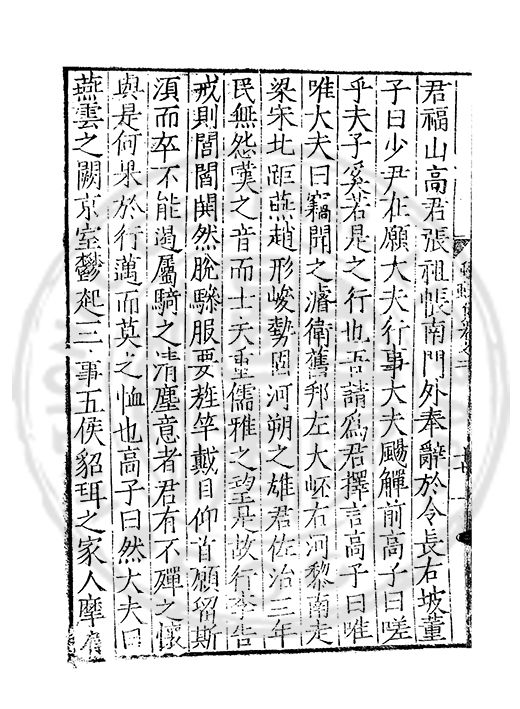 君福山高君張祖帳南門外奉辭於令長右坡董
子曰少尹在願大夫行事大夫颺觶前高子曰嗟
乎夫子奚若是之行也吾請爲君擇言高子曰唯
唯大夫曰竊聞之濬衛舊邦左大岯右河黎南走
梁宋北距燕趙形峻勢固河朔之雄君佐治三年
民無怨嘆之音而士夫重儒雅之望是故行李告
戒則閭閻闐然脫驂服要旌竿戴目仰首願留斯
須而卒不能遏屬騎之清塵意者君有不殫之懷
與是何果於行邁而莫之恤也高子曰然大夫曰
燕雲之闕京室鬱起三事五侯貂珥之家人摩肩